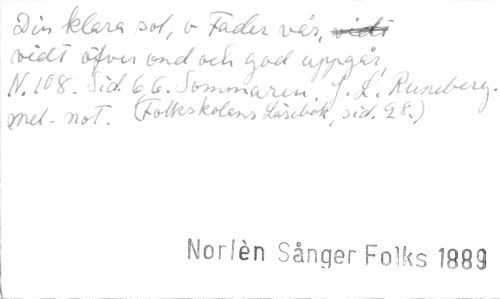 Din klara sol, o Fader vår, vidt
vidt öfver ond och god uppgår,
N. 108. Sid. 66. Sommaren. J. L. Runeberg.
mel. not. (Folkskolans Läsebok, sid. 98.)
Norlèn Sånger Folks 1889